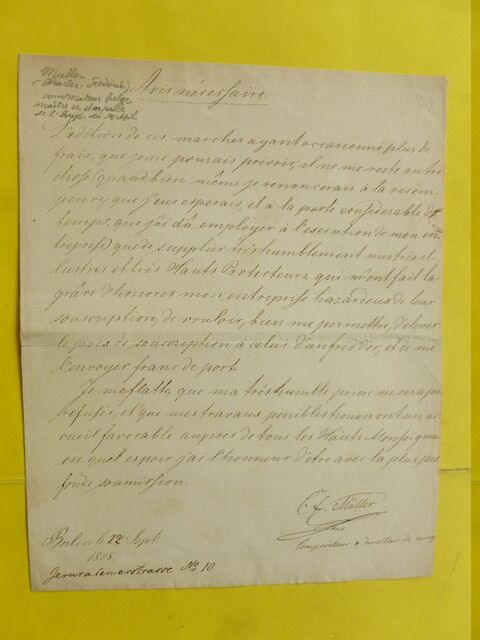 Müller
(Charles, Frédéric)
compositeur belge
maître de chapelle
de l'Emp. du Brésil
Avis nécessaire
L'edition de ces marches ayant occasionné plus de
frais, que je ne pouvais prévoir, il ne me reste autre
chose (quand bien même je renoncerais à la recom
pence que j'eus esperais, et à la perte considerable de
temps, que j'ai dû employer à l'execution de mon en
treprise) que de supplier très humblement mes très il
lustres et très Hauts Protecteurs, qui m'ont fait la
grâce d'honorer mon entreprise hazardeus de leur
souscription, de vouloir bien me permettre, d'elever
le prix de souscription à celui d'un fréd'or, et de me
l'envoyer franc de port.
Je me flatte que ma très humble priere ne sera pas
refusée, et que mes travaux penibles trouveront un ac
cueil favorable auprès de tous les Hauts
en quel espoir j'ai l'honneur d'être avec la plus pro
fonde soumission.
C. F. Müller
Compositeur & directeur de musiq
Berlin le 12 Sept.
1828
Jerusalemerstrasse No 10